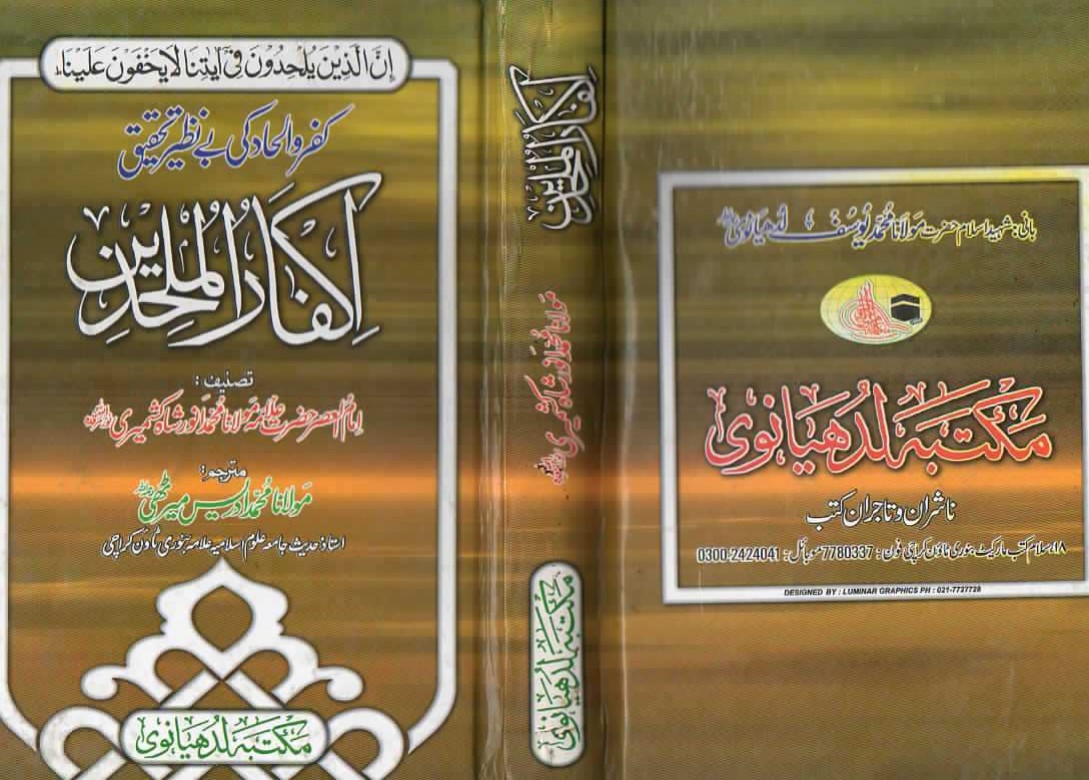 إِنَّ الَّذِيْنَ يُلْحِدُوْنَ فِيْٓ اٰيٰتِنَا لَا يَخْفَوْنَ عَلَيْنَا ط
کفر والحاد کی بے نظیر تحقیق
اِکفَارُ المُلحِدِین
تصنیف:
امام العصر حضرت علامہ مولانا محمد انور شاہ کشمیری
مترجم:
مولانا محمد ادریس میرٹھی
استاذ حدیث جامعہ علوم اسلامیہ علامہ بنوری ٹاؤن کراچی
مکتبہ لدھیانوی
اِکفار الملحدین
مولانا محمد انور شاہ کشمیری
مکتبہ لدھیانوی
بانی: شہید اسلام حضرت مولانا محمد یوسف لدھیانوی
مکتبہ لدھیانوی
ناشران و تاجران کتب
۱۸، سلام کتب مارکیٹ بنوری ٹاؤن کراچی فون: 7780337 موبائل: 0300-2424041
DESIGNED BY : LUMINAR GRAPHICS PH : 021-7727728